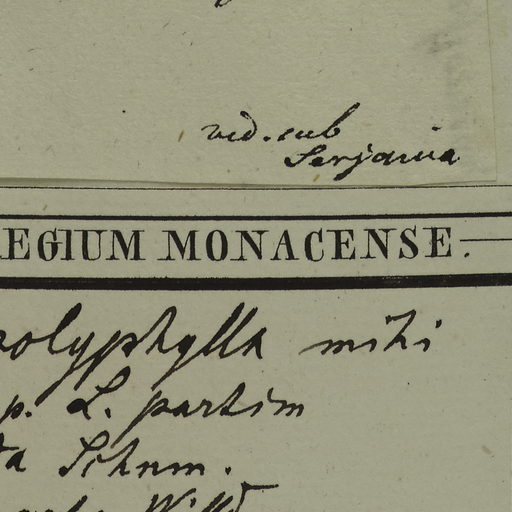 vid. sub
Serjania
REGIUM MONACENSE.
polyphylla mihi
p. L. partim
Schum.
Willd